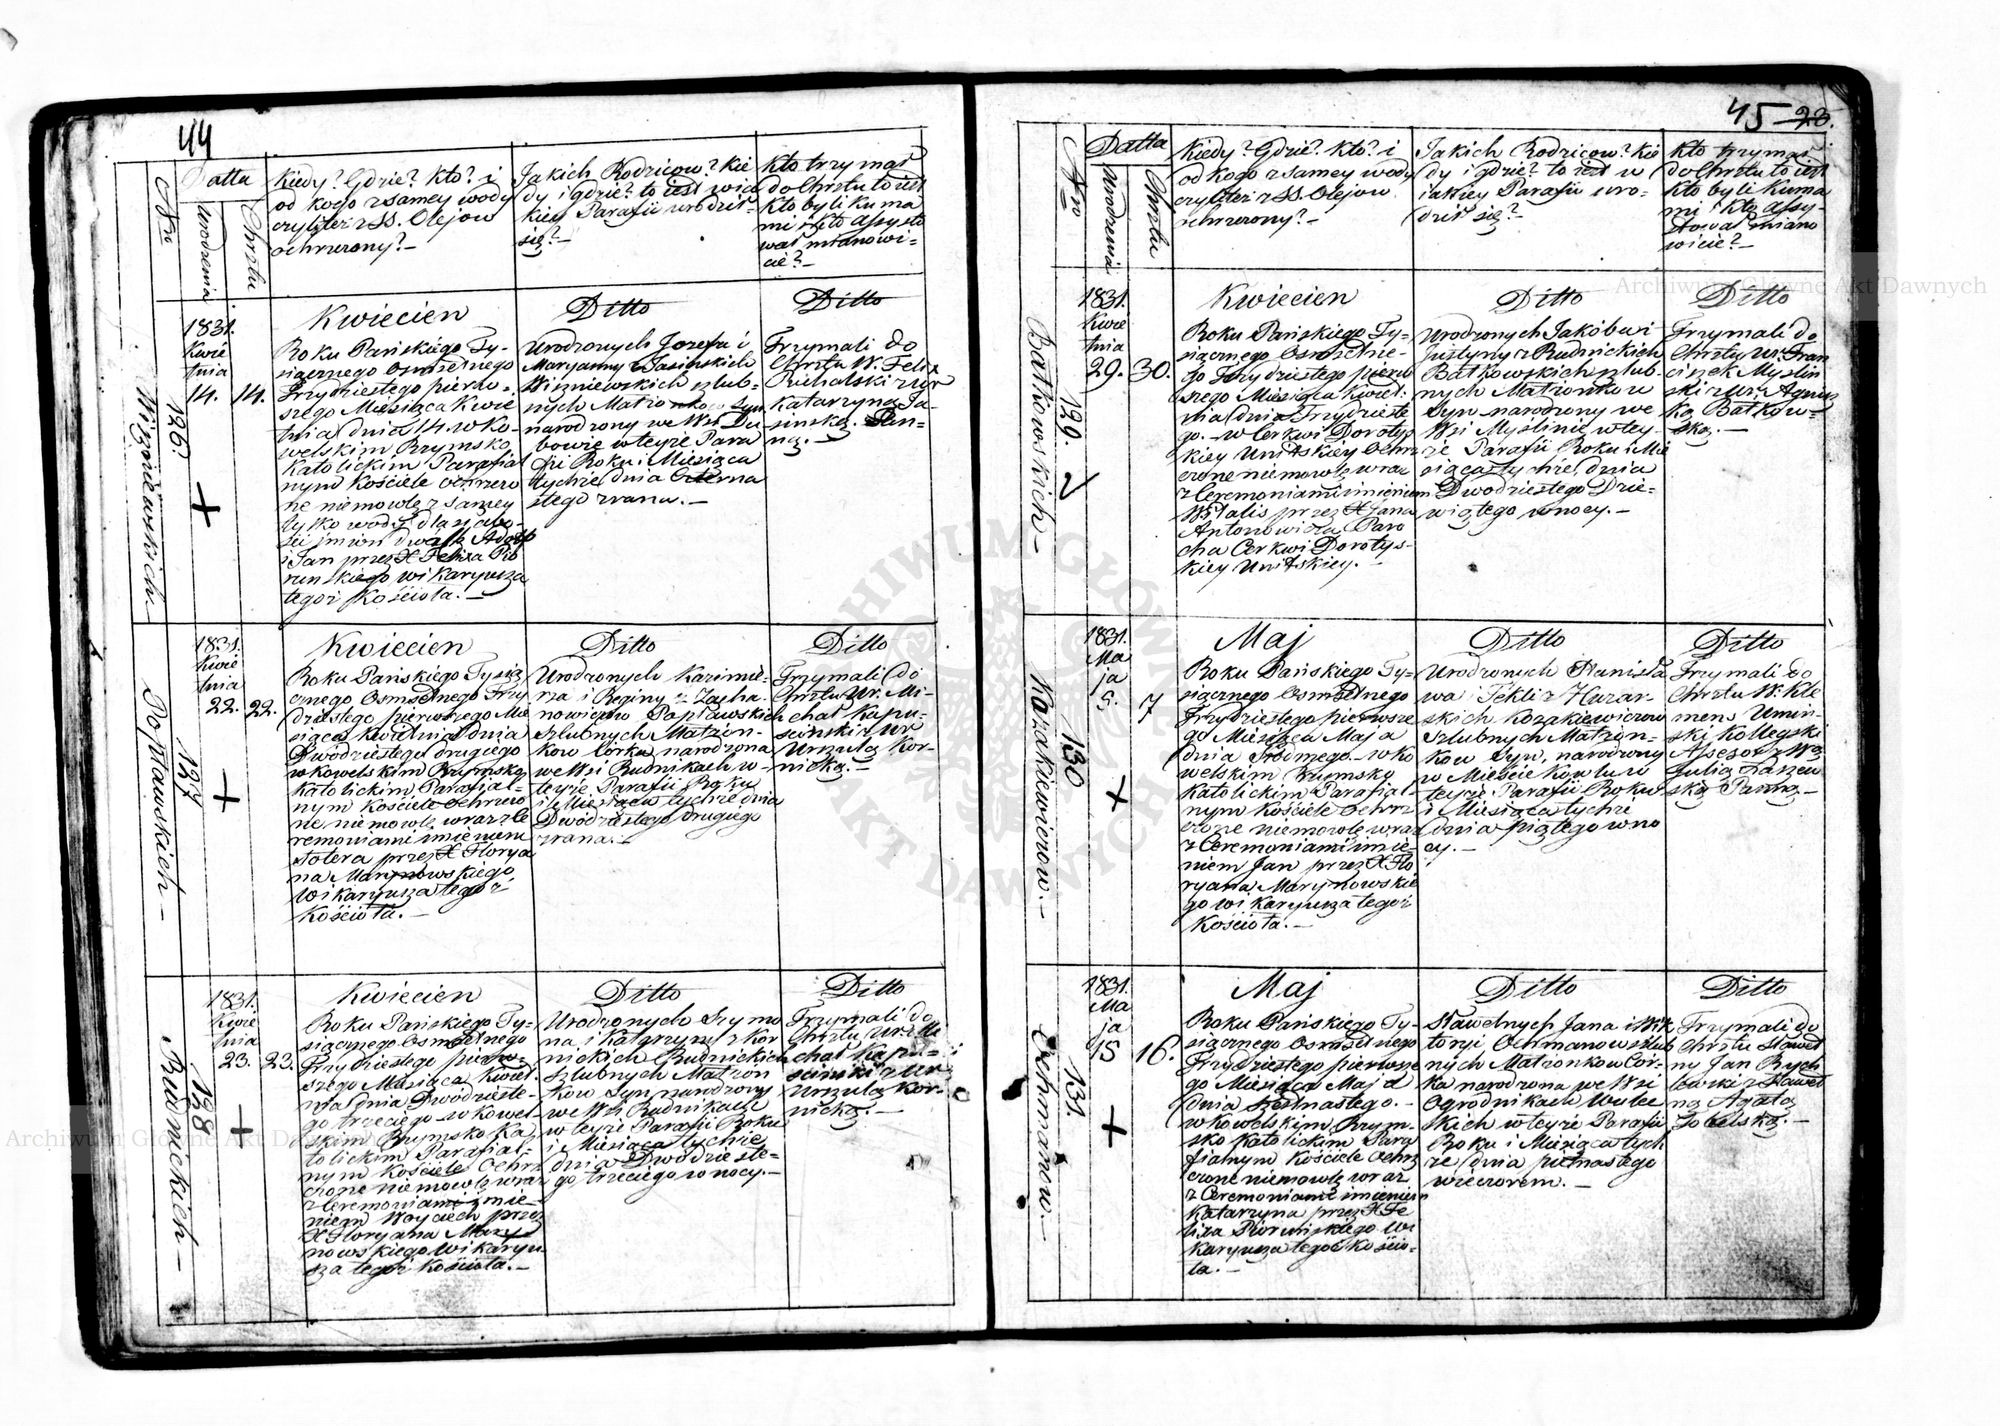 44
Nro
Datta
Urodzenia
Chrztu
Kiedy? Gdzie? Kto? i
od kogo z samey wody
czyliteż z SS. Olejow
ochrzczony?—
Jakich Rodzicow? Kie
dy i gdzie? to iest w ia
kiey Parafii urodził
się?—
Kto trzymał
do Chrztu to iest
Kto byli kuma
mi i kto assysto
wał mianowi-
cie?—
Wiszniewskich.—
126.
1831.
Kwie
tnia
14.
14.
Kwiecien
Roku Pańskiego Ty-
siącznego Osmsetnego
Trzydziestego pierw-
szego Miesiąca Kwie
tnia dnia 14. w Ko-
welskim Rzymsko
Katolickim Parafial
nym Kościele ochrzczo
ne niemowle z samey
tylko wody dla słabo-
ści imion dwóch Adolf
i Jan przez X Felixa Pio
runskiego wikaryusza
tegoż Kościoła.—
Ditto
Urodzonych Jozefa i
Maryanny z Jasinskich
Wiszniewskich szlub-
nych Matżonkow Syn
narodzony we Wsi Du
bowie w teyże Para
fii Roku i Miesiąca
tychże dnia Czterna
stego zrana.—
Ditto
Trzymali do
Chrztu W. Felix
Puchalski z Ur
Katarzyną Ja-
sinską Pan-
ną.—
Popławskich—
127
1831.
Kwie
tnia
22.
22.
Kwiecien
Roku Pańskiego Tysią
cznego Osmsetnego Trzy
dziestego pierwszego Mie
siąca Kwietnia dnia
Dwódziestego drugiego
w Kowelskim Rzymsko
Katolickim Parafial-
nym Kościele Ochrzczo
ne niemowle wraz z Ce
remoniami imieniem
Sotera przez X Florya
na Marynowskiego
Wikaryusza tegoż
Kościoła.—
Ditto
Urodzonych Kazimie-
rza i Reginy z Zacha-
nowiczow Popławskich
Szlubnych Matżon-
kow Corka narodzona
we Wsi Rudnikach w-
teyże Parafii Roku
i Miesiąca tychże dnia
Dwódziestego drugiego
zrana.—
Ditto
Trzymali do
Chrztu Ur. Mi-
chał Kapu-
scinski z Ur
Urszulą Kor-
nicką.—
Rudnickich—
128
1831.
Kwie
tnia
23.
23.
Kwiecien
Roku Pańskiego Ty-
siącznego Osmsetnego
Trzydziestego pierw-
szego Miesiąca Kwiet-
nia dnia Dwódzieste-
go trzeciego w Kowel-
skim Rzymsko Ka
tolickim Parafial-
nym Kościele Ochrz
czone niemowle wraz
z Ceremoniami imie-
niem Woyciech przez
X Floryana Mary
nowskiego Wikaryu
sza tegoż Kościoła.—
Ditto
Urodzonych Szymo
na i Katarzyny z Kor
nickich Rudnickich
Szlubnych Matżon
kow Syn narodzony
we Wsi Rudnikach
w teyże Parafii Roku
i Miesiąca tychże
dnia Dwódzieste-
go trzeciego w nocy.—
Ditto
Trzymali do
Chrztu Ur. Mi
chał Kapu-
scinski z Ur
Urszulą Kor-
nicką.—
45 23.
Nro
Datta
Urodzenia
Chrztu
Kiedy? Gdzie? Kto? i
od kogo z samey wody
czyliteż z SS. Olejow
ochrzczony?—
Jakich Rodzicow? Kie
dy i gdzie? to iest w
iakiey Parafii uro-
dził się?—
Kto trzymał
do Chrztu to iest
Kto byli kuma
mi i kto assy-
stował miano
wicie?—
Batkowskich—
129.
1831.
Kwie
tnia
29.
30.
Kwiecien
Roku Pańskiego Ty-
siącznego Osmsetne-
go Trzydziestego pierw
szego Miesiąca Kwiet-
nia dnia Trzydzieste
go.— w Cerkwi Dorotys
kiey Unitskiey Ochrz
czone niemowle wraz
z Ceremoniami imieniem
Witalis przez X Jana
Antonowicza Paro
cha Cerkwi Dorotys-
kiey Unitskiey.—
Ditto
Urodzonych Jakóba i
Justyny z Rudnickich
Batkowskich szlub-
nych Matżonkow
Syn narodzony we
Wsi Myslinie w tey-
że Parafii Roku i Mie
siąca tychże dnia
Dwodziestego Dzie-
wiątego w nocy.—
Ditto
Trzymali do
Chrztu Ur. Fran
ciszek Myslin
ski z Ur. Agnisz
ką Batkow-
ską.—
Kozakiewiczow.—
130
1831.
Ma
ja
5.
7
Maj
Roku Pańskiego Ty-
siącznego Osmsetnego
Trzydziestego pierwsze
go Miesiąca Maja
dnia Siodmego w Ko
welskim Rzymsko
Katolickim Parafial
nym Kościele Ochrz
czone niemowle wraz
z Ceremoniami imie-
niem Jan przez X Flo
ryana Marynowskie
go Wikaryusza tegoż
Kościoła.—
Ditto
Urodzonych Stanisła
wa i Tekli z Huzar-
skich Kozakiewiczow
Szlubnych Matżon-
kow Syn, narodzony
w Miescie Kowlu w
teyże Parafii Roku
i Miesiąca tychże
dnia piątego w no
cy.—
Ditto
Trzymali do
Chrztu W. Kle
mens Umin-
ski Kollegski
Assesor z W.
Julią Laszew
ską Panną—
Ochmanow.—
131.
1831.
Ma
ja
15
16.
Maj
Roku Pańskiego Ty-
siącznego Osmsetnego
Trzydziestego pierwsze
go Miesiąca Maja
dnia Szesnastego.—
w Kowelskim Rzym-
sko Katolickim Para
fialnym Kościele Ochrz
czone niemowle wraz
z Ceremoniami imieniem
Katarzyna przez X Fe
lixa Piorunskiego Wi
karyusza tegoż Kościo-
ła.—
Ditto
Sławetnych Jana i Wik
toryi Ochmanow szlub
nych Matżonkow Cor-
ka narodzona we Wsi
Ogrodnikach Wolec
kich w teyże Parafii
Roku i Miesiąca tych
że dnia pietnastego
wieczorem.—
Ditto
Trzymali do
Chrztu Sławet
ny Jan Rych
lowski z Sławet
ną Agatą
Sobelską.—
Archiwum Główne Akt Dawnych
Archiwum Główne Akt Dawnych
ARCHIWUM GŁÓWNE AKT DAWNYCH